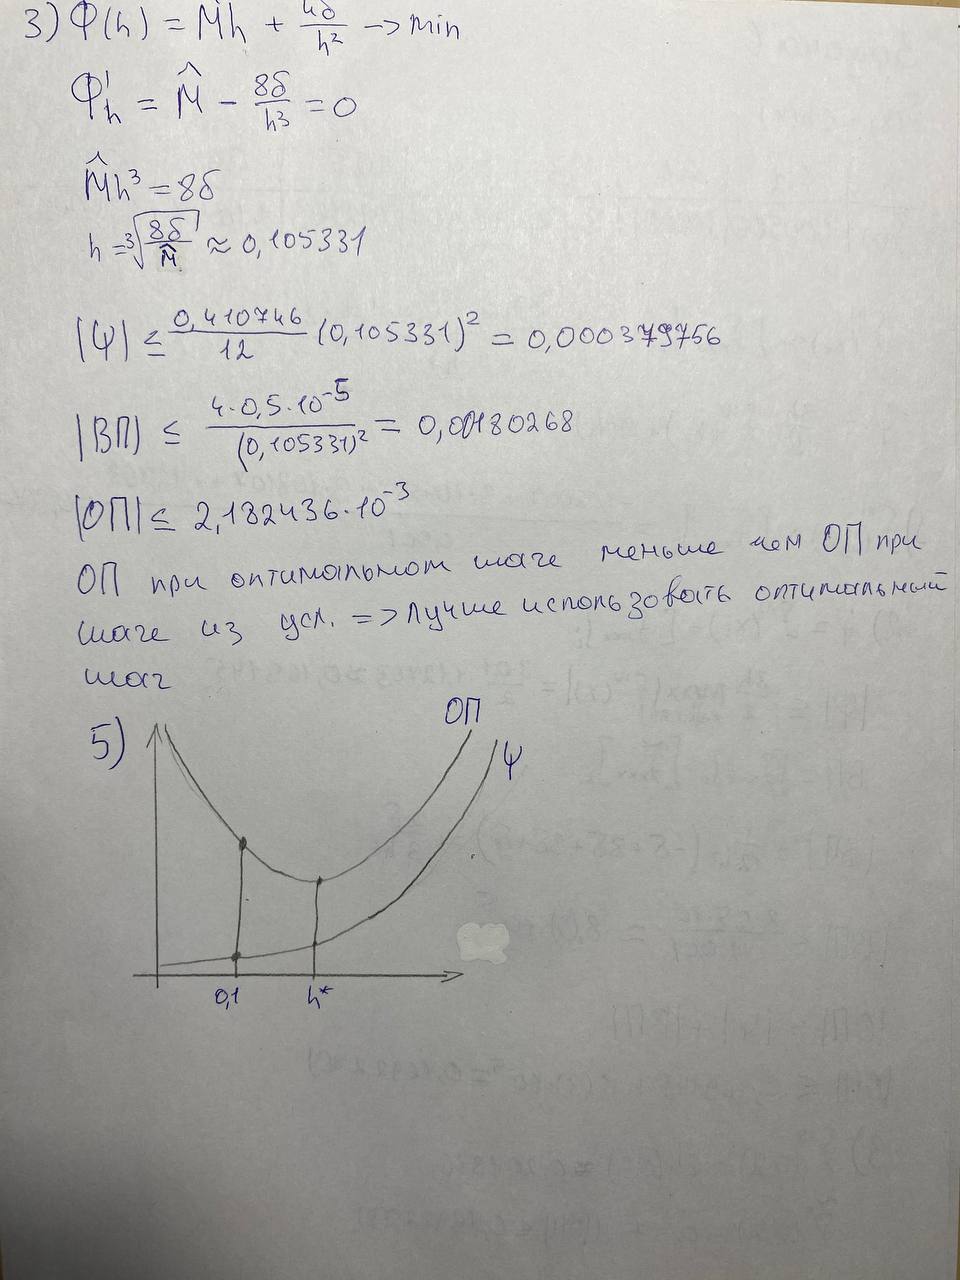 3) Φ(h) = M̂h + 4δ/h² → min
Φ'h = M̂ - 8δ/h³ = 0
M̂h³ = 8δ
h = ³√(8δ/M̂) ≈ 0,105331
|Ψ| ≤ 0,410746/12 (0,105331)² = 0,000379756
|ВП| ≤ 4·0,5·10⁻⁵/(0,105331)² = 0,00180268
|ОП| ≤ 2,182436·10⁻³
ОП при оптимальном шаге меньше чем ОП при
шаге из усл. => лучше использовать оптимальный
шаг
5)
ОП
Ψ
0,1 h*